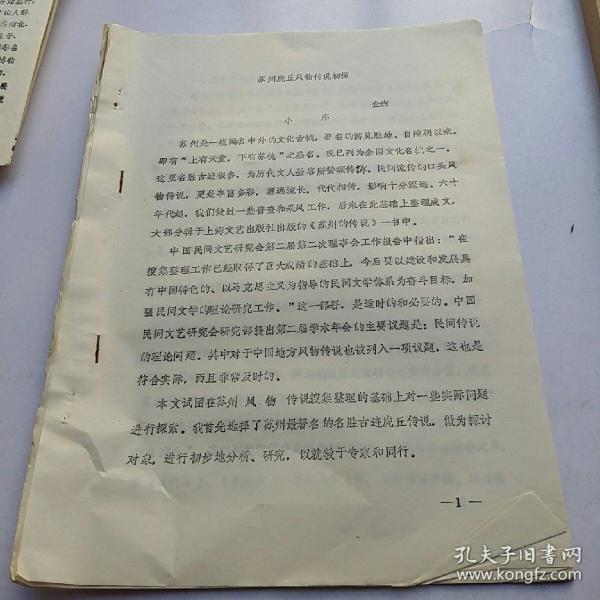 苏州虎丘风物传说初探
金煦
小序
苏州是一座闻名中外的文化古城，著名的游览胜地。自隋朝以来，
即有“上有天堂，下有苏杭”之盛名。现已列为全国文化名城之一。
这里名胜古迹很多，为历代文人墨客所赞颂传辞。民间流传的口头风
物传说，更是丰富多彩，源远流长，代代相传，影响十分深远。六十
年代起，我们做过一些普查和采风工作，后来在此基础上整理成文，
大部分辑于上海文艺出版社出版的《苏州的传说》一书中。
中国民间文艺研究会第二届第二次理事会工作报告中指出：“在
搜集整理工作已经取得了巨大成绩的基础上，今后要以建设和发展具
有中国特色的、以马克思主义为指导的民间文学体系为奋斗目标，加
强民间文学的理论研究工作。”这一部署，是适时的和必要的。中国
民间文艺研究会研究部提出第二届学术年会的主要议题是：民间传说
的理论问题。其中对于中国地方风物传说也被列入一项议题。这也是
符合实际，而且非常及时的。
本文试图在苏州 风 物 传说搜集整理的基础上对一些实际问题
进行探索。我首先选择了苏州最著名的名胜古迹虎丘传说，做为探讨
对象，进行初步地分析、研究，以就教于专家和同行。
—1—
孔夫子旧书网
www.kongfz.com